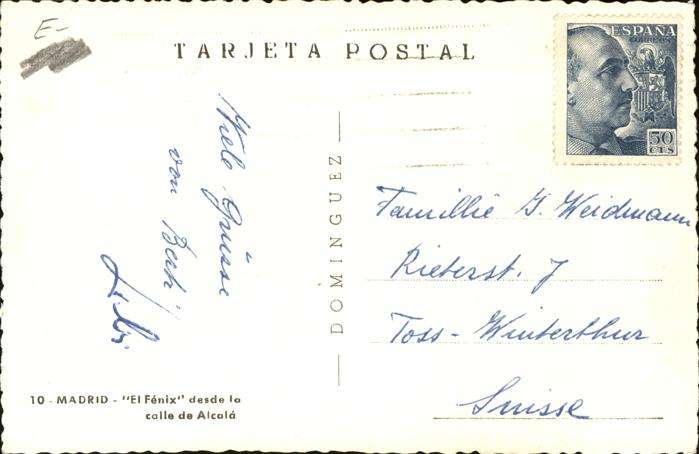 E-
TARJETA POSTAL
ESPAÑA
CORREOS
50
CTS
Viele Grüsse
von Berti
DOMINGUEZ
Famillie G. Weidmann
Rieterst. 7
Töss - Winterthur
Suisse
10 - MADRID - "El Fénix" desde la
calle de Alcalá